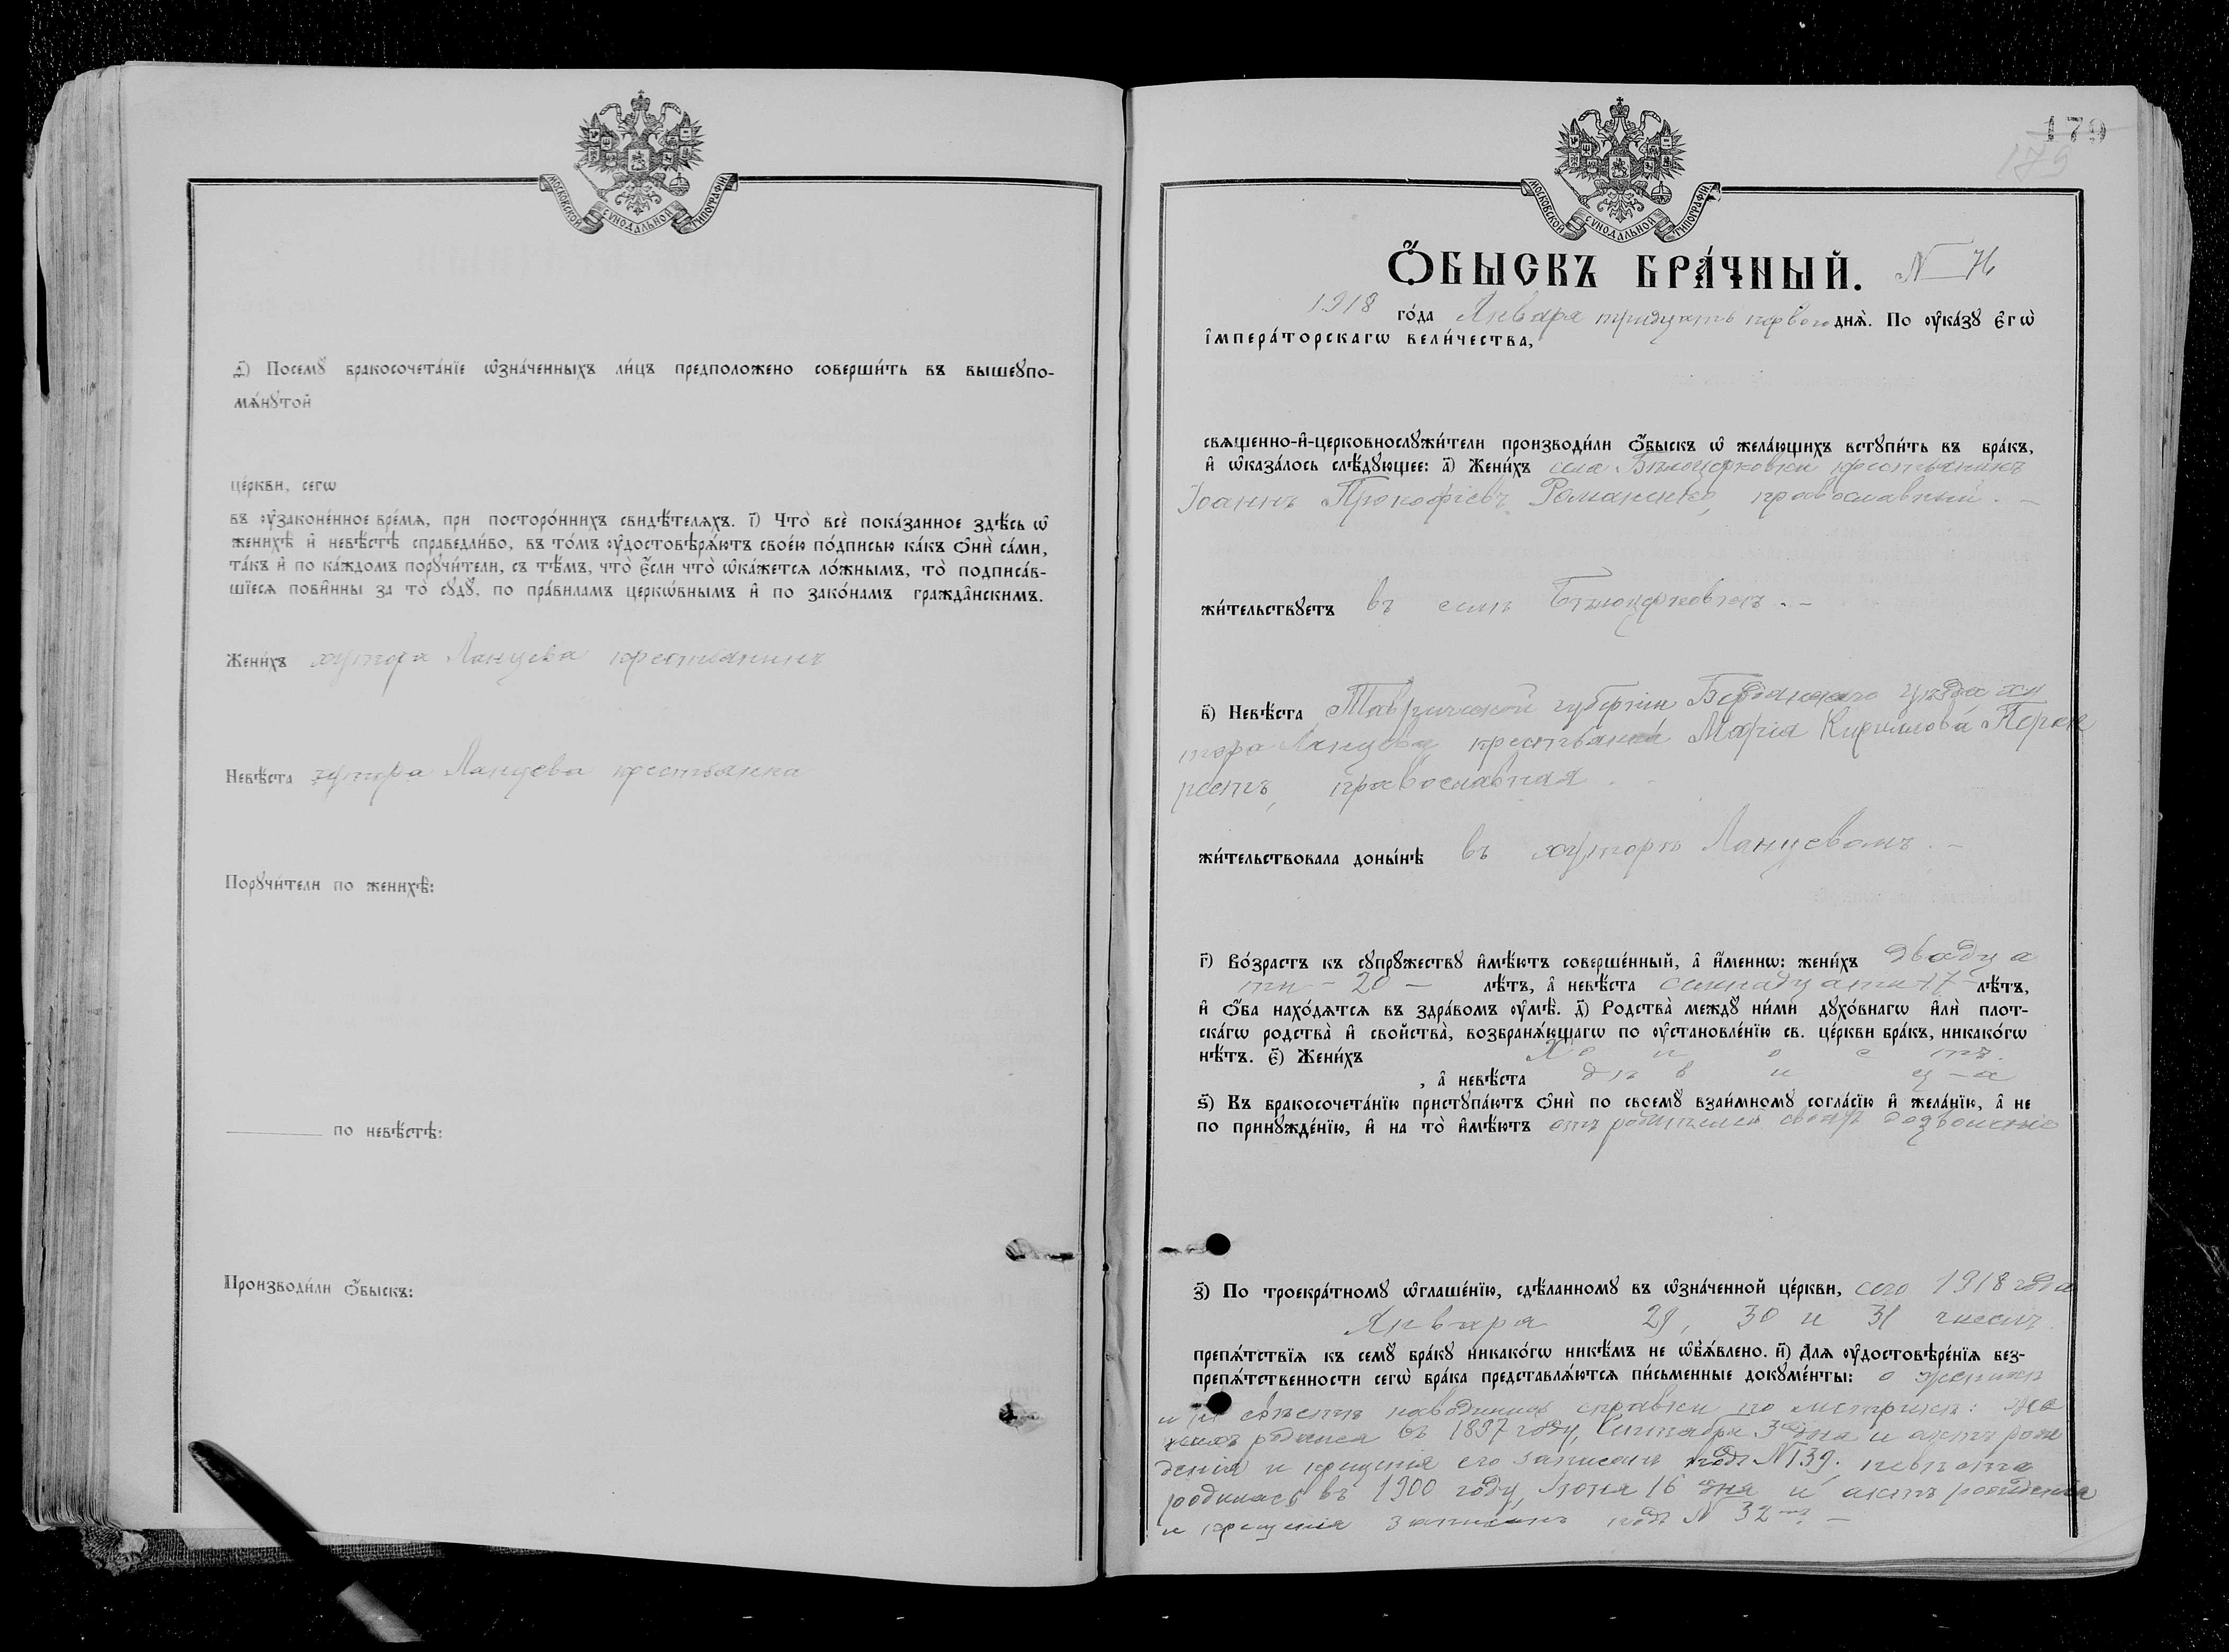 МОСКОВСКОЙ СѴНОДАЛЬНОЙ ТИПОГРАФІИ
д҃) Посемꙋ бракосочета́нїе ѡ҆зна́ченныхъ ли́цъ предположено соверши́ть въ вышеꙋпо-
мѧ́нꙋтой
це́ркви, сегѡ
въ ᲂу҆законе́нное вре́мѧ, при посторо́ннихъ свидѣ́телѧхъ. і҃) Что̀ всѐ пока́занное здѣ́сь ѡ҆
женихѣ̀ и҆ невѣ́стѣ справедли́во, въ то́мъ ᲂу҆достовѣрѧ́ютъ свое́ю по́дписью ка́къ ѻ҆нѝ са́ми,
та́къ и҆ по ка́ждомъ порꙋчи́тели, съ тѣ́мъ, что̀ є҆́сли что̀ ѡ҆ка́жетсѧ ло́жнымъ, то̀ подписа́в-
шїесѧ пови́нны за то̀ сꙋдꙋ̀, по пра́виламъ церкѡ́внымъ и҆ по зако́намъ гражда́нскимъ.
Жени́хъ хутора Ланцева крестьянинъ
Невѣ́ста хутора Ланцева крестьянка
Порꙋчи́тели по женихѣ̀:
по невѣ́стѣ:
Производи́ли ѻ҆́быскъ:
179
179
МОСКОВСКОЙ СѴНОДАЛЬНОЙ ТИПОГРАФІИ
Ѻ҆́БЫСКЪ БРА́ЧНЫЙ. N
1918 го́да Января тридцать первого днѧ̀. По ᲂу҆ка́зꙋ є҆гѡ̀
і҆мпера́торскагѡ вели́чества,
свѧщенно-и҆-церковнослꙋжи́тели производи́ли ѻ҆́быскъ ѡ҆ жела́ющихъ встꙋпи́ть въ бра́къ,
и҆ ѡ҆каза́лось слѣ́дꙋющее: а҃) Жени́хъ села Бѣлоцерковки крестьянинъ
Іоаннъ Прокофіевъ Романенко, православный. –
жи́тельствꙋетъ въ селѣ Бѣлоцерковкѣ . –
в҃) Невѣ́ста Таврической губерніи Бердянскаго уѣзда ху
тора Ланцева крестьянка Марія Кириллова Пере
рестъ, православная .
жи́тельствовала доны́нѣ въ хуторѣ Ланцевомъ. –
г҃) Во́зрастъ къ сꙋпрꙋ́жествꙋ и҆мѣ́ютъ соверше́нный, а҆ и҆́меннѡ: жени́хъ двадца
ти – 20 – лѣ́тъ, а҆ невѣ́ста семнадцати 17 лѣ́тъ,
и҆ ѻ҆́ба нахо́дѧтсѧ въ здра́вомъ ᲂу҆мѣ̀. д҃) Родства̀ междꙋ̀ ни́ми дꙋхо́внагѡ и҆лѝ плот-
ска́гѡ родства̀ и҆ свойства̀, возбранѧ́ющагѡ по ᲂу҆становле́нїю св. це́ркви бра́къ, никако́гѡ
нѣ́тъ. є҃) Жени́хъ Х о л о с тъ.
, а҆ невѣ́ста д ѣ в и ц – а
ѕ҃) Къ бракосочета́нїю пристꙋпа́ютъ ѻ҆нѝ по своемꙋ̀ взаи́мномꙋ согла́сїю и҆ жела́нїю, а҆ не
по принꙋжде́нїю, и҆ на то̀ и҆мѣ́ютъ отъ родителей своихъ дозволеніе
з҃) По троекра́тномꙋ ѡ҆глаше́нїю, сдѣ́ланномꙋ въ ѡ҆зна́ченной це́ркви, сего 1918 года
Января 29, 30 и 31 чиселъ
препѧ́тствїѧ къ семꙋ̀ бра́кꙋ никако́гѡ никѣ́мъ не ѡ҆б̾ѧ́влено. и҃) Для ᲂу҆достовѣре́нїѧ без-
препѧ́тственности сегѡ̀ бра́ка представлѧ́ютсѧ пи́сьменные докꙋме́нты: о женихѣ
и невѣстѣ наводились справки по метрикѣ: же
нихъ родился въ 1897 году, Сентября 3 дня и актъ рож
денія и крещенія его записанъ подъ N 139. невѣста
родилась въ 1900 году, Іюня 16 дня и актъ рожденія
и крещенія записанъ подъ N 32 –